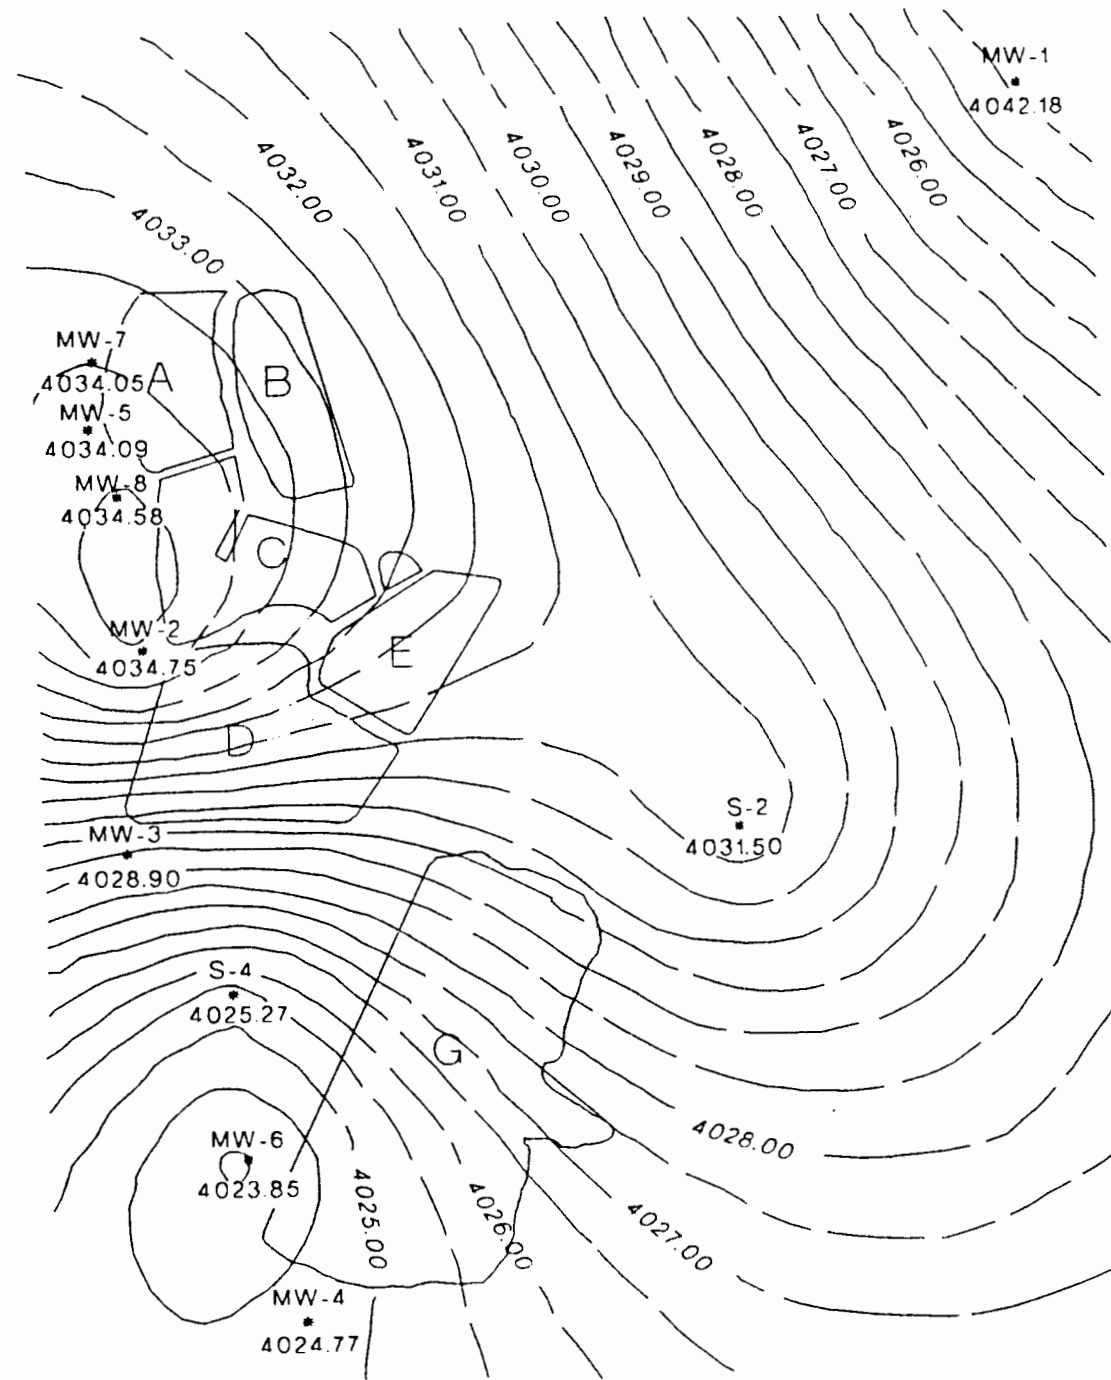 MW-1
4042.18
4032.00
4031.00
4030.00
4029.00
4028.00
4027.00
4026.00
4033.00
MW-7
4034.05
A
B
MW-5
4034.09
MW-8
4034.58
C
MW-2
4034.75
E
D
S-2
4031.50
MW-3
4028.90
S-4
4025.27
G
MW-6
4023.85
4028.00
4025.00
4026.00
4027.00
MW-4
4024.77